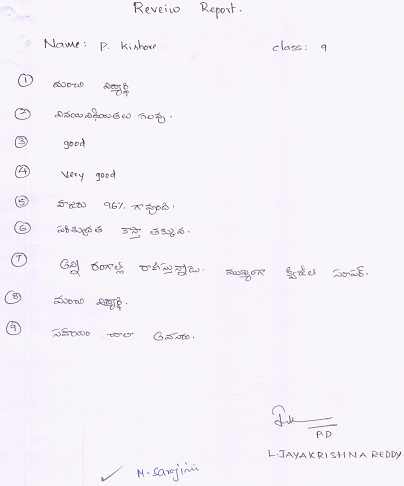 Reveiw Report.
Name: P. Kishore class: 9
① మంచి విద్యార్థి
② వినయవిధేయతలు గలవు.
③ good
④ Very good
⑤ హాజరు 96% గా వుంది.
⑥ పరిశుభ్రత కాస్తా తక్కువ.
⑦ అన్ని రంగాల్లో రాణిస్తున్నాడు. ముఖ్యంగా క్విజ్‌లో సూపర్.
⑧ మంచి విద్యార్థి.
⑨ సహాయం చాలా అవసరం.
P.D
L.JAYAKRISHNA REDDY
M. Sarojini